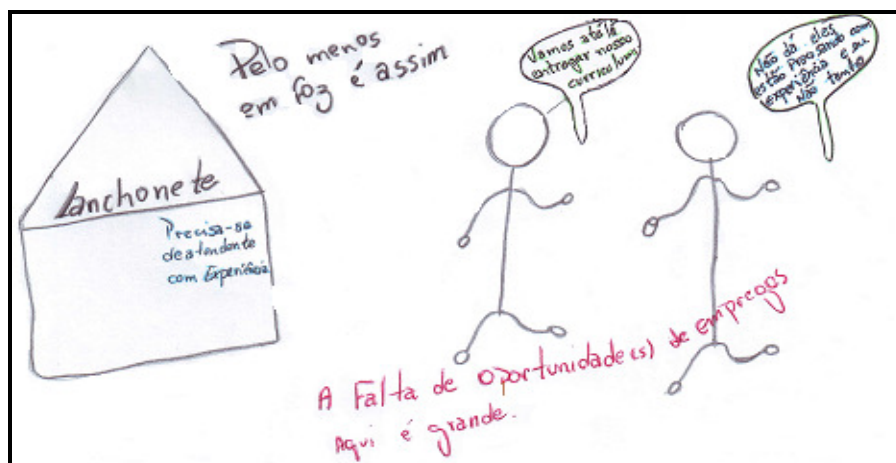 Pelo menos
em foz é assim
Lanchonete
Precisa-se
de atendente
com Experiência
Vamos até lá
entregar nosso
curriculum
Não dá eles
estão precisando com
experiência e eu
não tenho
A Falta de oportunidade(s) de empregos
Aqui é grande.